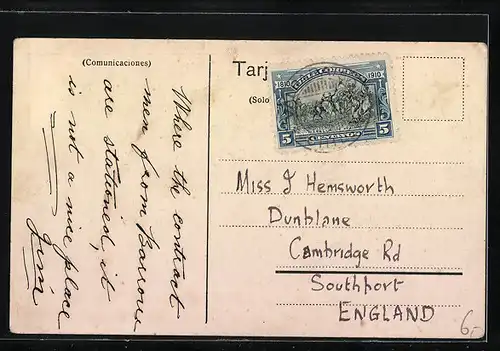 (Comunicaciones)
Tarj
(Solo
CHILE CORREOS
1810 1910
5 CENTAVOS 5
Where the contract
men from Barrow
are stationed, it
is not a nice place
Jim
Miss J Hemsworth
Dunblane
Cambridge Rd
Southport
ENGLAND
6,-